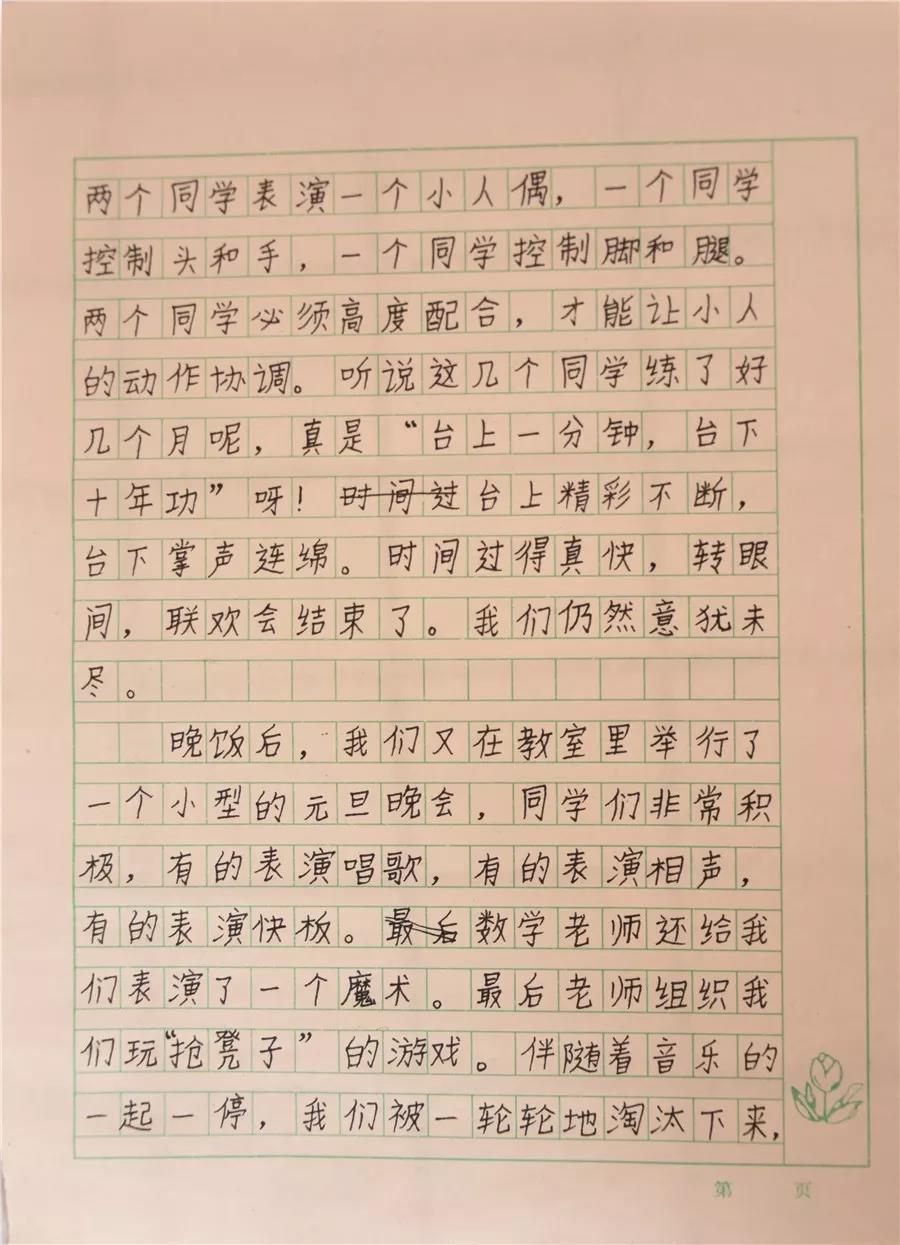 两个同学表演一个小人偶，一个同学
控制头和手，一个同学控制脚和腿。
两个同学必须高度配合，才能让小人
的动作协调。听说这几个同学练了好
几个月呢，真是“台上一分钟，台下
十年功”呀！时间过台上精彩不断，
台下掌声连绵。时间过得真快，转眼
间，联欢会结束了。我们仍然意犹未
尽。
晚饭后，我们又在教室里举行了
一个小型的元旦晚会，同学们非常积
极，有的表演唱歌，有的表演相声，
有的表演快板。最后数学老师还给我
们表演了一个魔术。最后老师组织我
们玩“抢凳子”的游戏。伴随着音乐的
一起一停，我们被一轮轮地淘汰下来，
第 页